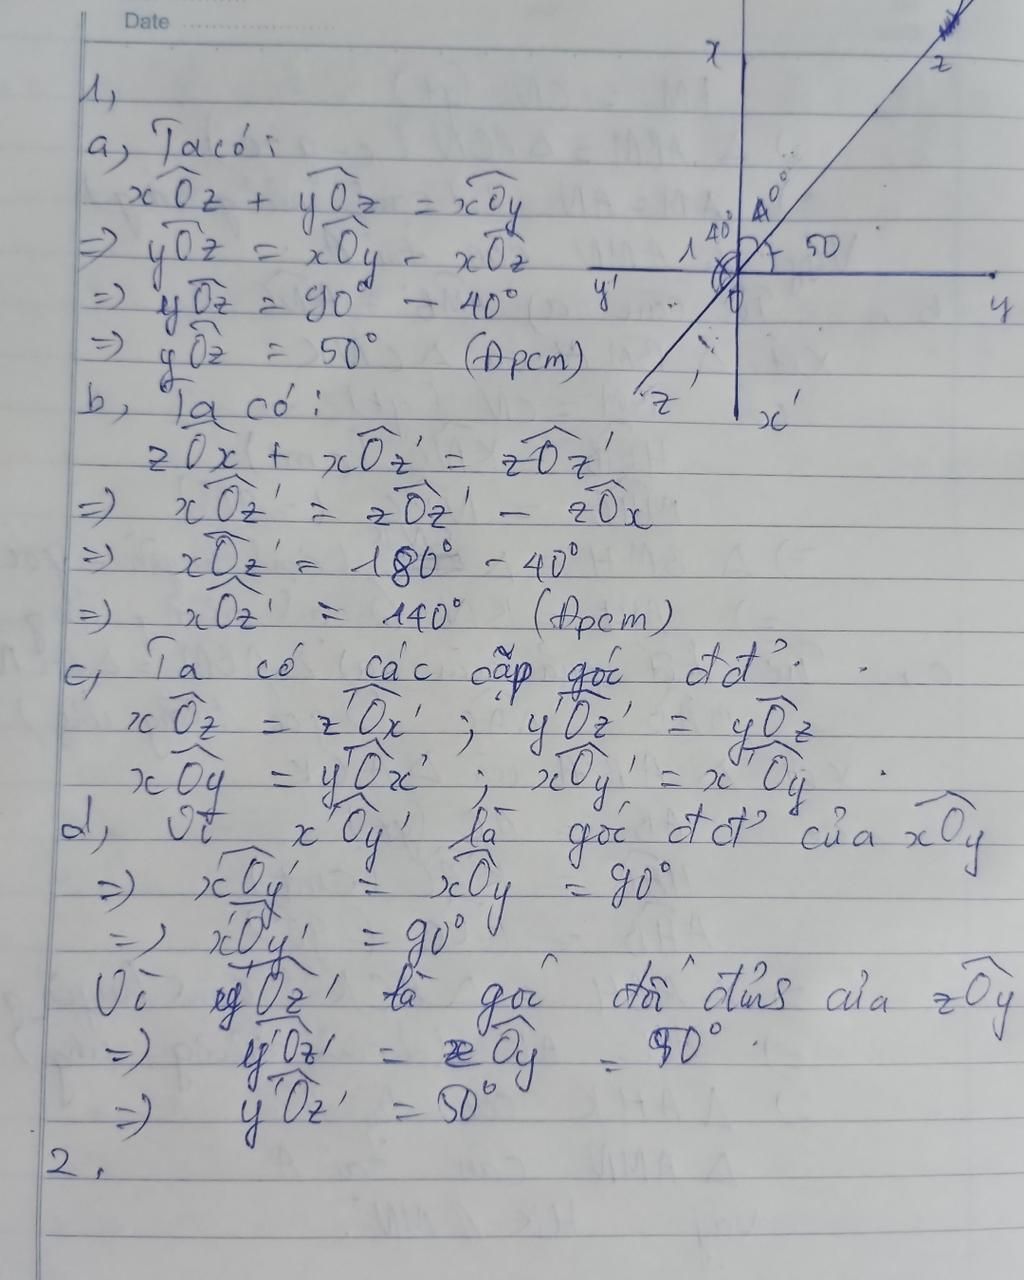 Date
1,
a, Ta có:
xÔz + yÔz = xÔy
=> yÔz = xÔy - xÔz
=> yÔz = 90° - 40°
=> yÔz = 50° (Đpcm)
b, Ta có:
zÔx + xÔz' = zÔz'
=> xÔz' = zÔz' - zÔx
=> xÔz' = 180° - 40°
=> xÔz' = 140° (Đpcm)
c, Ta có các cặp góc đđ?
xÔz = z'Ôx' ; y'Ôz' = yÔz
xÔy = y'Ôx' ; xÔy' = x'Ôy
d, Vì x'Ôy' là góc đđ? của xÔy
=> x'Ôy' = xÔy = 90°
=> x'Ôy' = 90°
Vì y'Ôz' là góc đối đỉnh của zÔy
=> y'Ôz' = zÔy = 50°
=> y'Ôz' = 50°
2.
x
z
40°
40°
1
50
y'
O
y
z'
x'